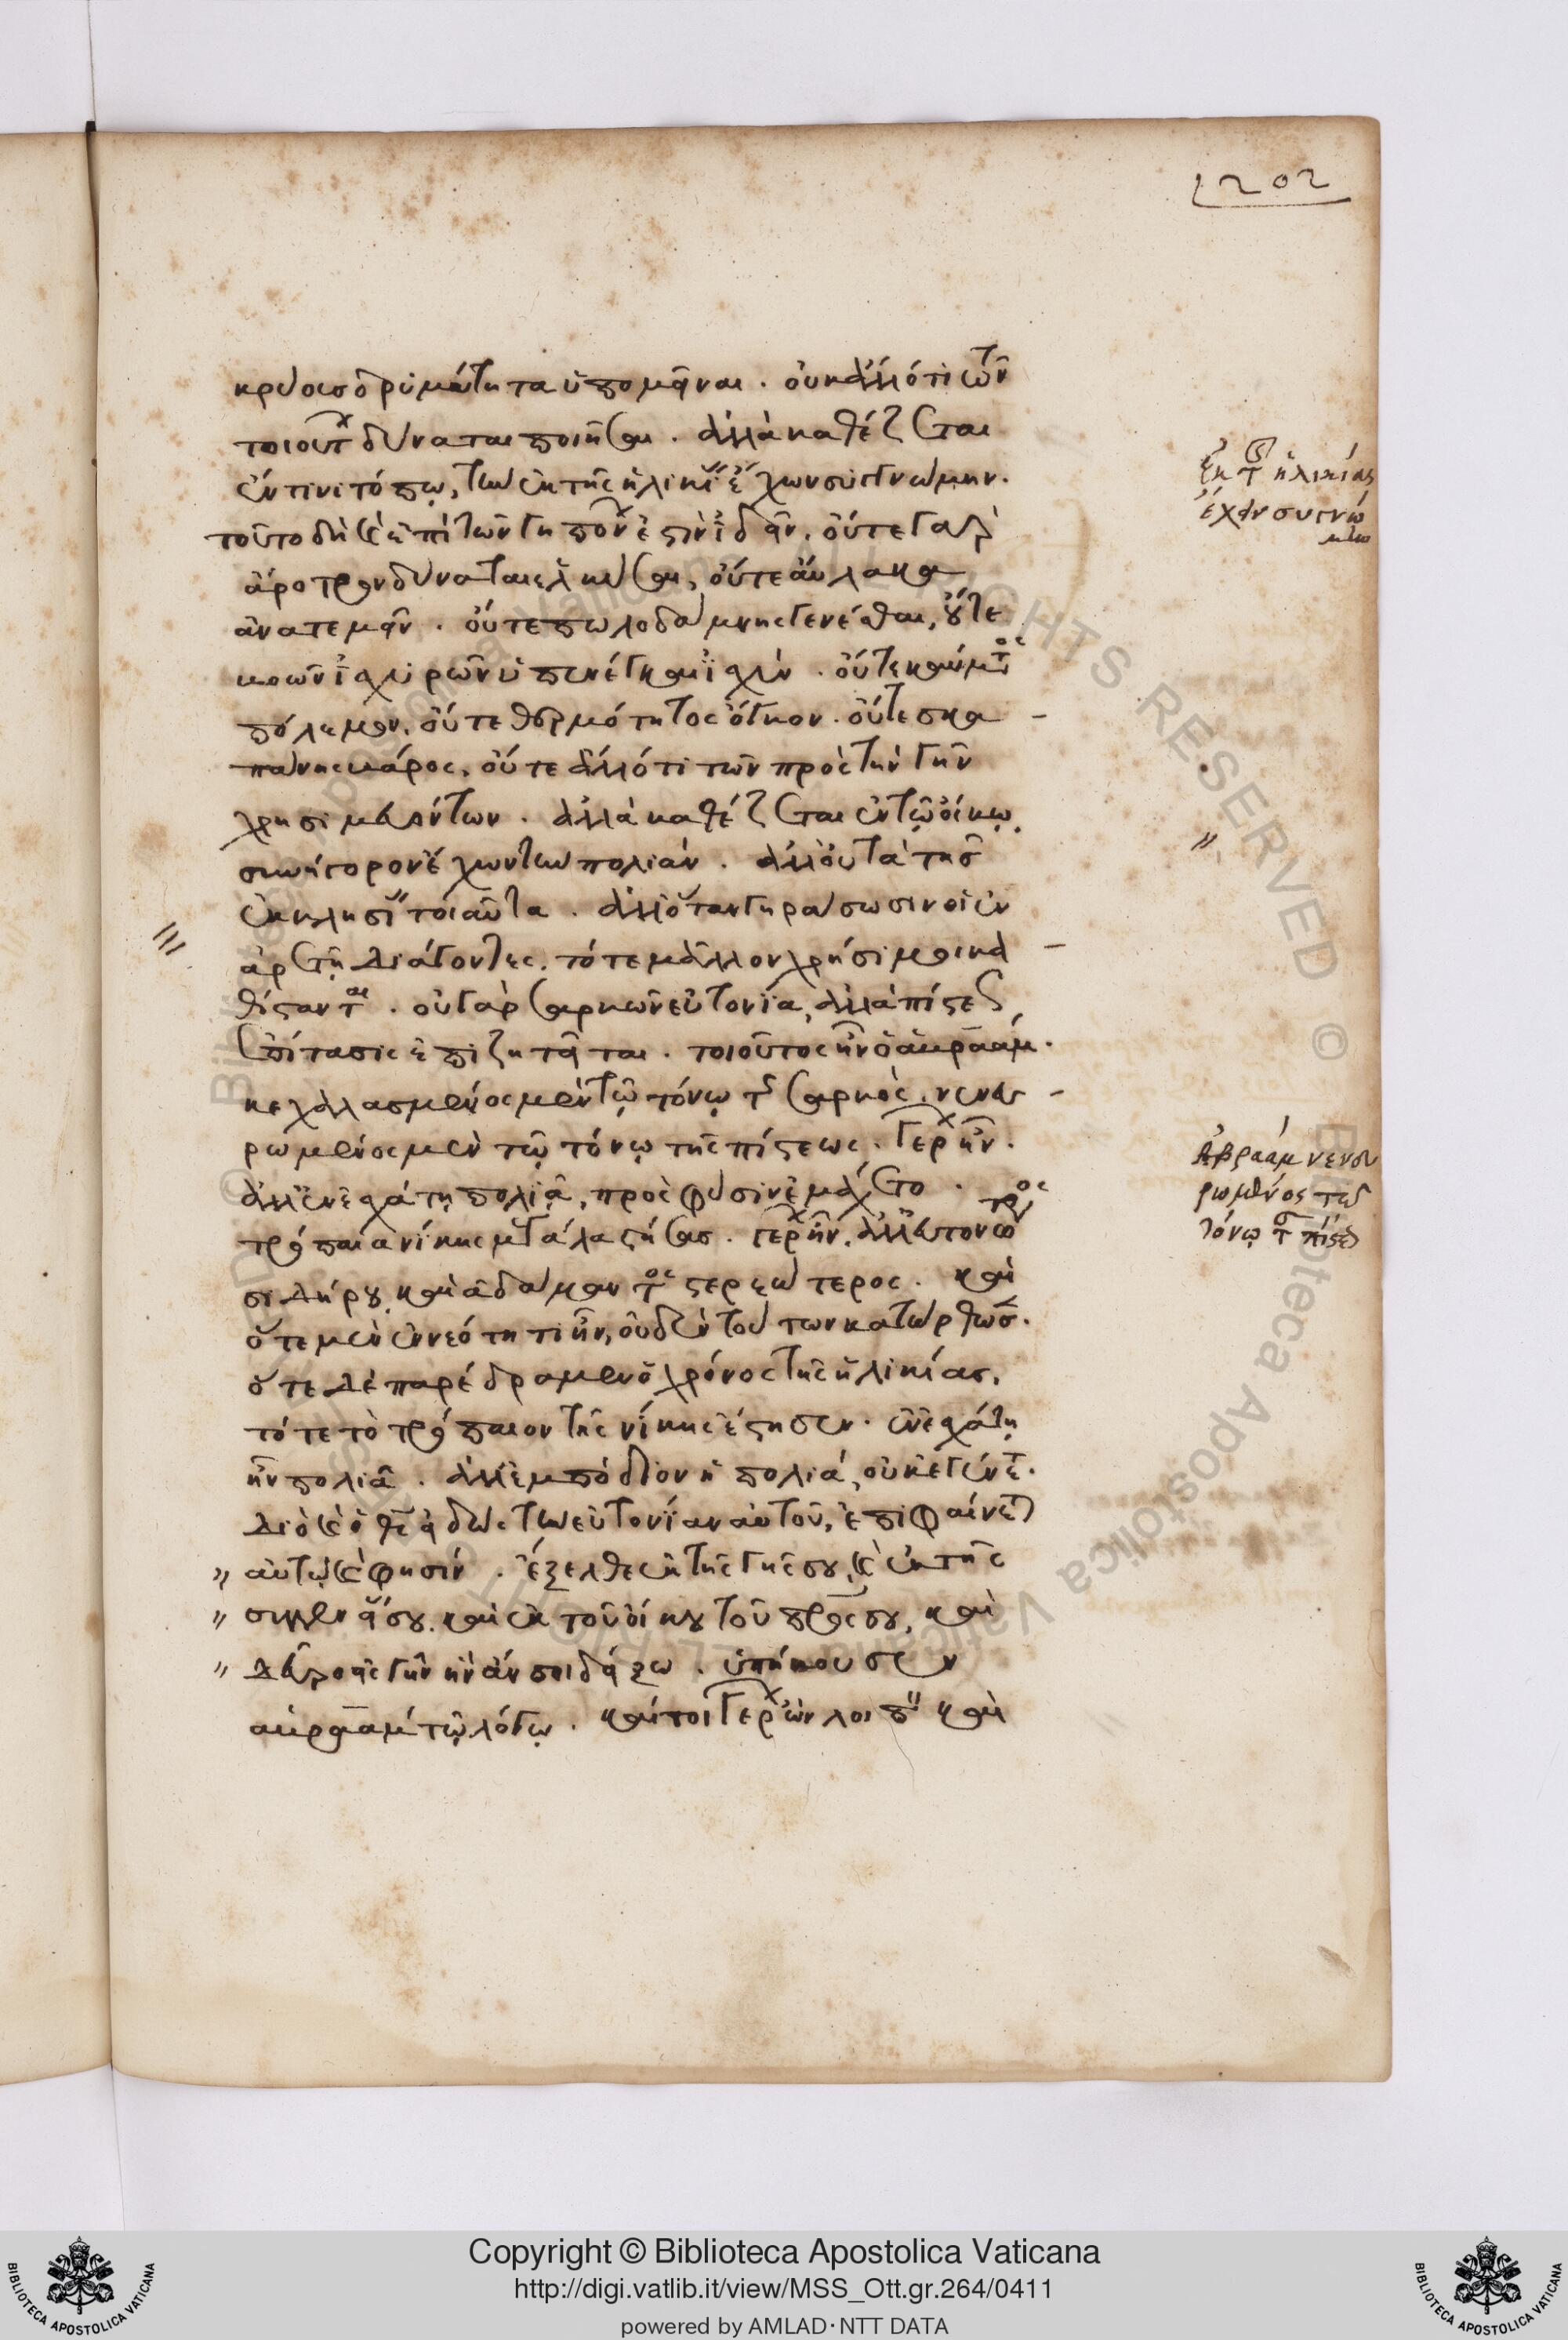 202
κρύους δριμύτητα ὑπομεῖναι . οὐκ ἄλλό τι τῶν
τοιούτων δύναται ποιῆσαι . ἀλλὰ καθέζεται
ἔν τινι τόπῳ, τὴν ἐκ τῆς ἡλικίας ἔχων συγγνώμην .
τοῦτο δὴ καὶ ἐπὶ τῶν γηπόνων ἐστὶν ἰδεῖν . οὔτε γὰρ
ἄροτρον δύναται ἑλκύσαι, οὔτε αὔλακα
ἀνατεμεῖν . οὔτε πωλοδάμνης γενέσθαι, οὔτε
βοῶν ἰσχυρῶν ὑπενέγκαι ἰσχύν . οὔτε καύματος
πόλεμον, οὔτε θερμότητος ὄγκον . οὔτε σκα
πάνης βάρος, οὔτε ἄλλό τι τῶν πρὸς τὴν γῆν
χρησιμευόντων . ἀλλὰ καθέζεται ἐν τῷ οἴκῳ,
συνήγορον ἔχων τὴν πολιάν . ἀλλ' οὐ τὰ τῆς
ἐκκλησίας τοιαῦτα . ἀλλ' ὅταν γηράσωσιν οἱ ἐν
ἀρετῇ διάγοντες, τότε μᾶλλον χρήσιμοι κα
θίστανται . οὐ γὰρ σαρκῶν εὐτονία, ἀλλὰ πίστεως
ἐπίτασις ἐπιζητεῖται . τοιοῦτος ἦν ὁ ἀβραάμ .
κεχαλασμένος μὲν τῷ τόνῳ τῆς σαρκὸς, νενευ
ρωμένος μὲν τῷ τόνῳ τῆς πίστεως . γέρων ἦν .
ἀλλ' ἐν ἐσχάτῃ πολιᾷ, πρὸς φύσιν ἐμάχετο .
τρόπαια νίκης μεγάλα στήσας . γέρων ἦν, ἀλλ' εὐτονώτερος
σιδήρου, καὶ ἀδάμαντος στερεώτερος . καὶ
ὅτε μὲν ἐν νεότητι ἦν, οὐδὲν τούτων κατώρθωσε .
ὅτε δὲ παρέδραμεν ὁ χρόνος τῆς ἡλικίας,
τότε τὸ τρόπαιον τῆς νίκης ἔστησεν . ἐν ἐσχάτῃ
ἦν πολιᾷ . ἀλλ' ἐμπόδιον ἡ πολιά, οὐκ ἐγένετο .
διὸ καὶ ὁ θεὸς εἰδὼς τὴν εὐτονίαν αὐτοῦ, ἐπιφαίνεται
" αὐτῷ καὶ φησίν . ἔξελθε ἐκ τῆς γῆς σου, καὶ ἐκ τῆς
" συγγενείας σου, καὶ ἐκ τοῦ οἴκου τοῦ πατρός σου, καὶ
" δεῦρο εἰς γῆν ἣν ἄν σοι δείξω . ὑπήκουσεν
ἀβραὰμ τῷ λόγῳ . καίτοι γέρων ὢν λοιπὸν καὶ
ἐκ τῆς ἡλικίας
ἔχειν συγγνώ
μην
Ἀβραάμ νενευ
ρωμένος τῷ
τόνῳ τῆς πίστεως
Copyright © Biblioteca Apostolica Vaticana
http://digi.vatlib.it/view/MSS_Ott.gr.264/0411
powered by AMLAD·NTT DATA
BIBLIOTECA APOSTOLICA VATICANA
BIBLIOTECA APOSTOLICA VATICANA